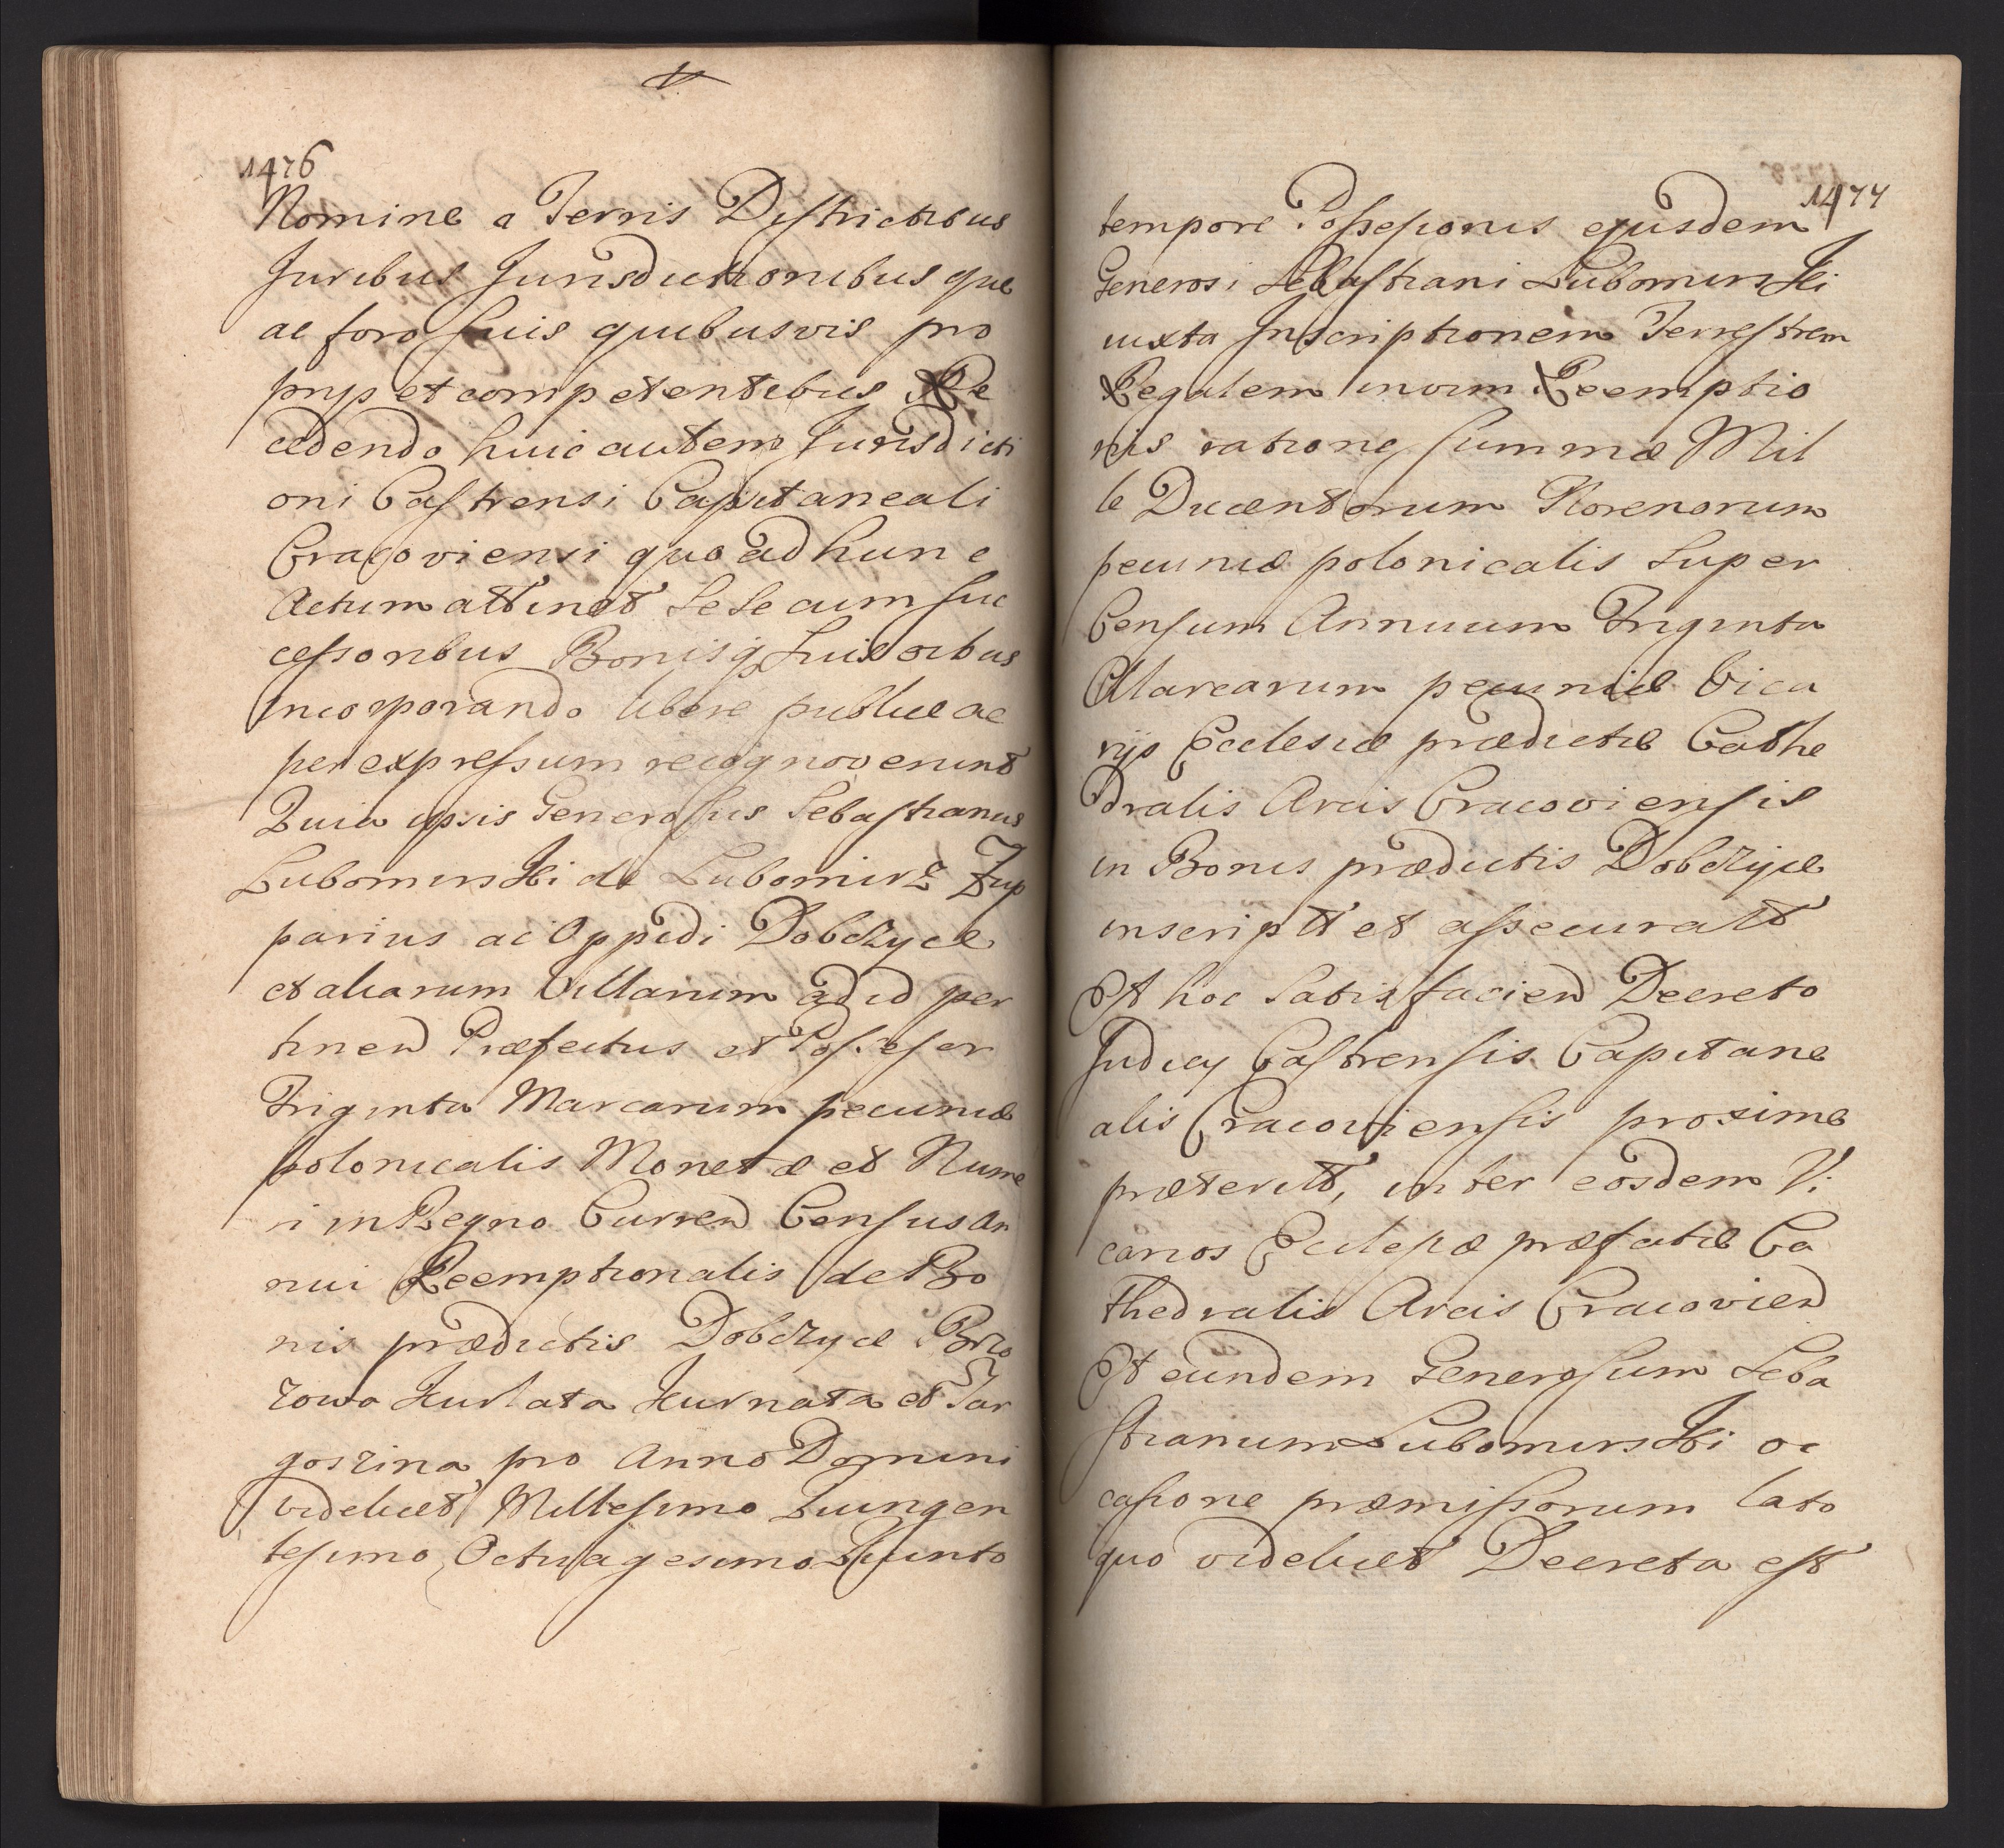 1476
Nomine a Terris Districtibus
Juribus Jurisdictionibus que
ac foro suis quibusvis pro
prijs et competentibus Re
cedendo huic autem Jurisdicti
oni Castrensi Capitaneali
Cracoviensi quo ad hunc
Actum attinet Sese cum suc
cessoribus Bonisq suis orbus
Incorporando libere publice ac
per expressum recognoverunt
Quia ipsis Generosus Sebastianus
Lubomirski de Lubomirz Zup
parius ac Oppidi Dobczyce
et aliarum Villarum ad id per
tinen Præfectus et Possessor
Triginta Marcarum pecuniæ
polonicalis Monetæ et Nume
ri in Regno Curren Census An
nui Reemptionalis de Bo
nis prædictis Dobczyce Brzo
zowa Kurlata Kurnata et Tar
goszina pro Anno Domini
videlicet Millesimo Quingen
tesimo Octuagesimo Quinto
1477
tempore Possessionis ejusdem
Generosi Sebastiani Lubomirski
iuxta Inscriptionem Terrestrem
Regalem in vim Reemptio
nis ratione summæ Mil
le Ducentorum Florenorum
pecuniæ polonicalis Super
Censum Annuum Triginta
Marcarum pecuniæ Vica
rijs Ecclesiæ prædictæ Cathe
dralis Arcis Cracoviensis
in Bonis prædictis Dobczyce
inscriptt et assecuratt
Et hoc Satisfacien Decreto
Judicij Castrensis Capitane
alis Cracoviensis proxime
præteritt, inter eosdem Vi
carios Ecclesiæ præfatæ Ca
thedralis Arcis Cracovien
Et eundem Generosum Seba
stianum Lubomirski oc
casione præmissorum lato
quo videlicet Decreta est